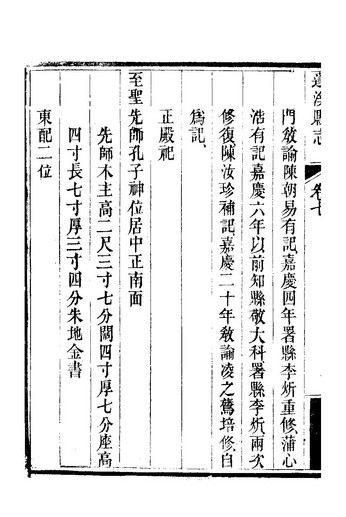 蓬溪縣志
卷七
門敎諭陳朝易有記嘉慶四年署縣李炘重修蒲心
浩有記嘉慶六年以前知縣敬大科署縣李炘兩次
修復陳汝珍補記嘉慶二十年敎諭凌之鶩培修自
爲記
正殿祀
至聖先師孔子神位居中正南面
先師木主高二尺三寸七分闊四寸厚七分座高
四寸長七寸厚三寸四分朱地金書
東配二位